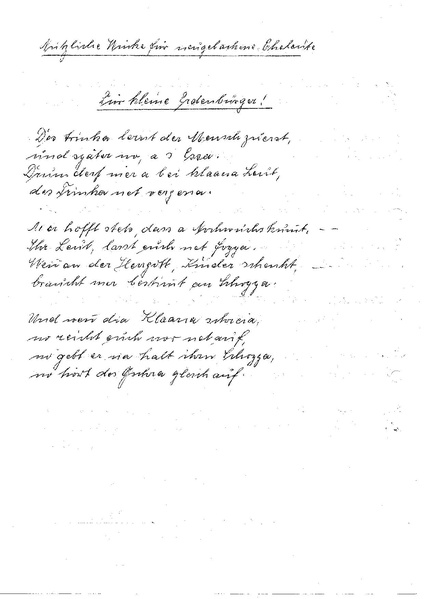 Nützliche Winke für neugebackene Eheleute
Für kleine Erdenbürger!
Des trinka lernt der Mensch zuerst,
und später no, a 's Essa.
Drum derf mer a bei klaana Leut,
des Trinka net vergessa.
Mer hofft stets, dass a Nachwuchs kummt, --
Ihr Leut, lasst euch net
Wenn an der Herrgott, Kinder schenkt, --
braucht mer bestimt an
Und wenn dia Klaana schreia,
no reicht euch nor net auf,
no gebt er na halt ihrn
no hört des gleich auf.